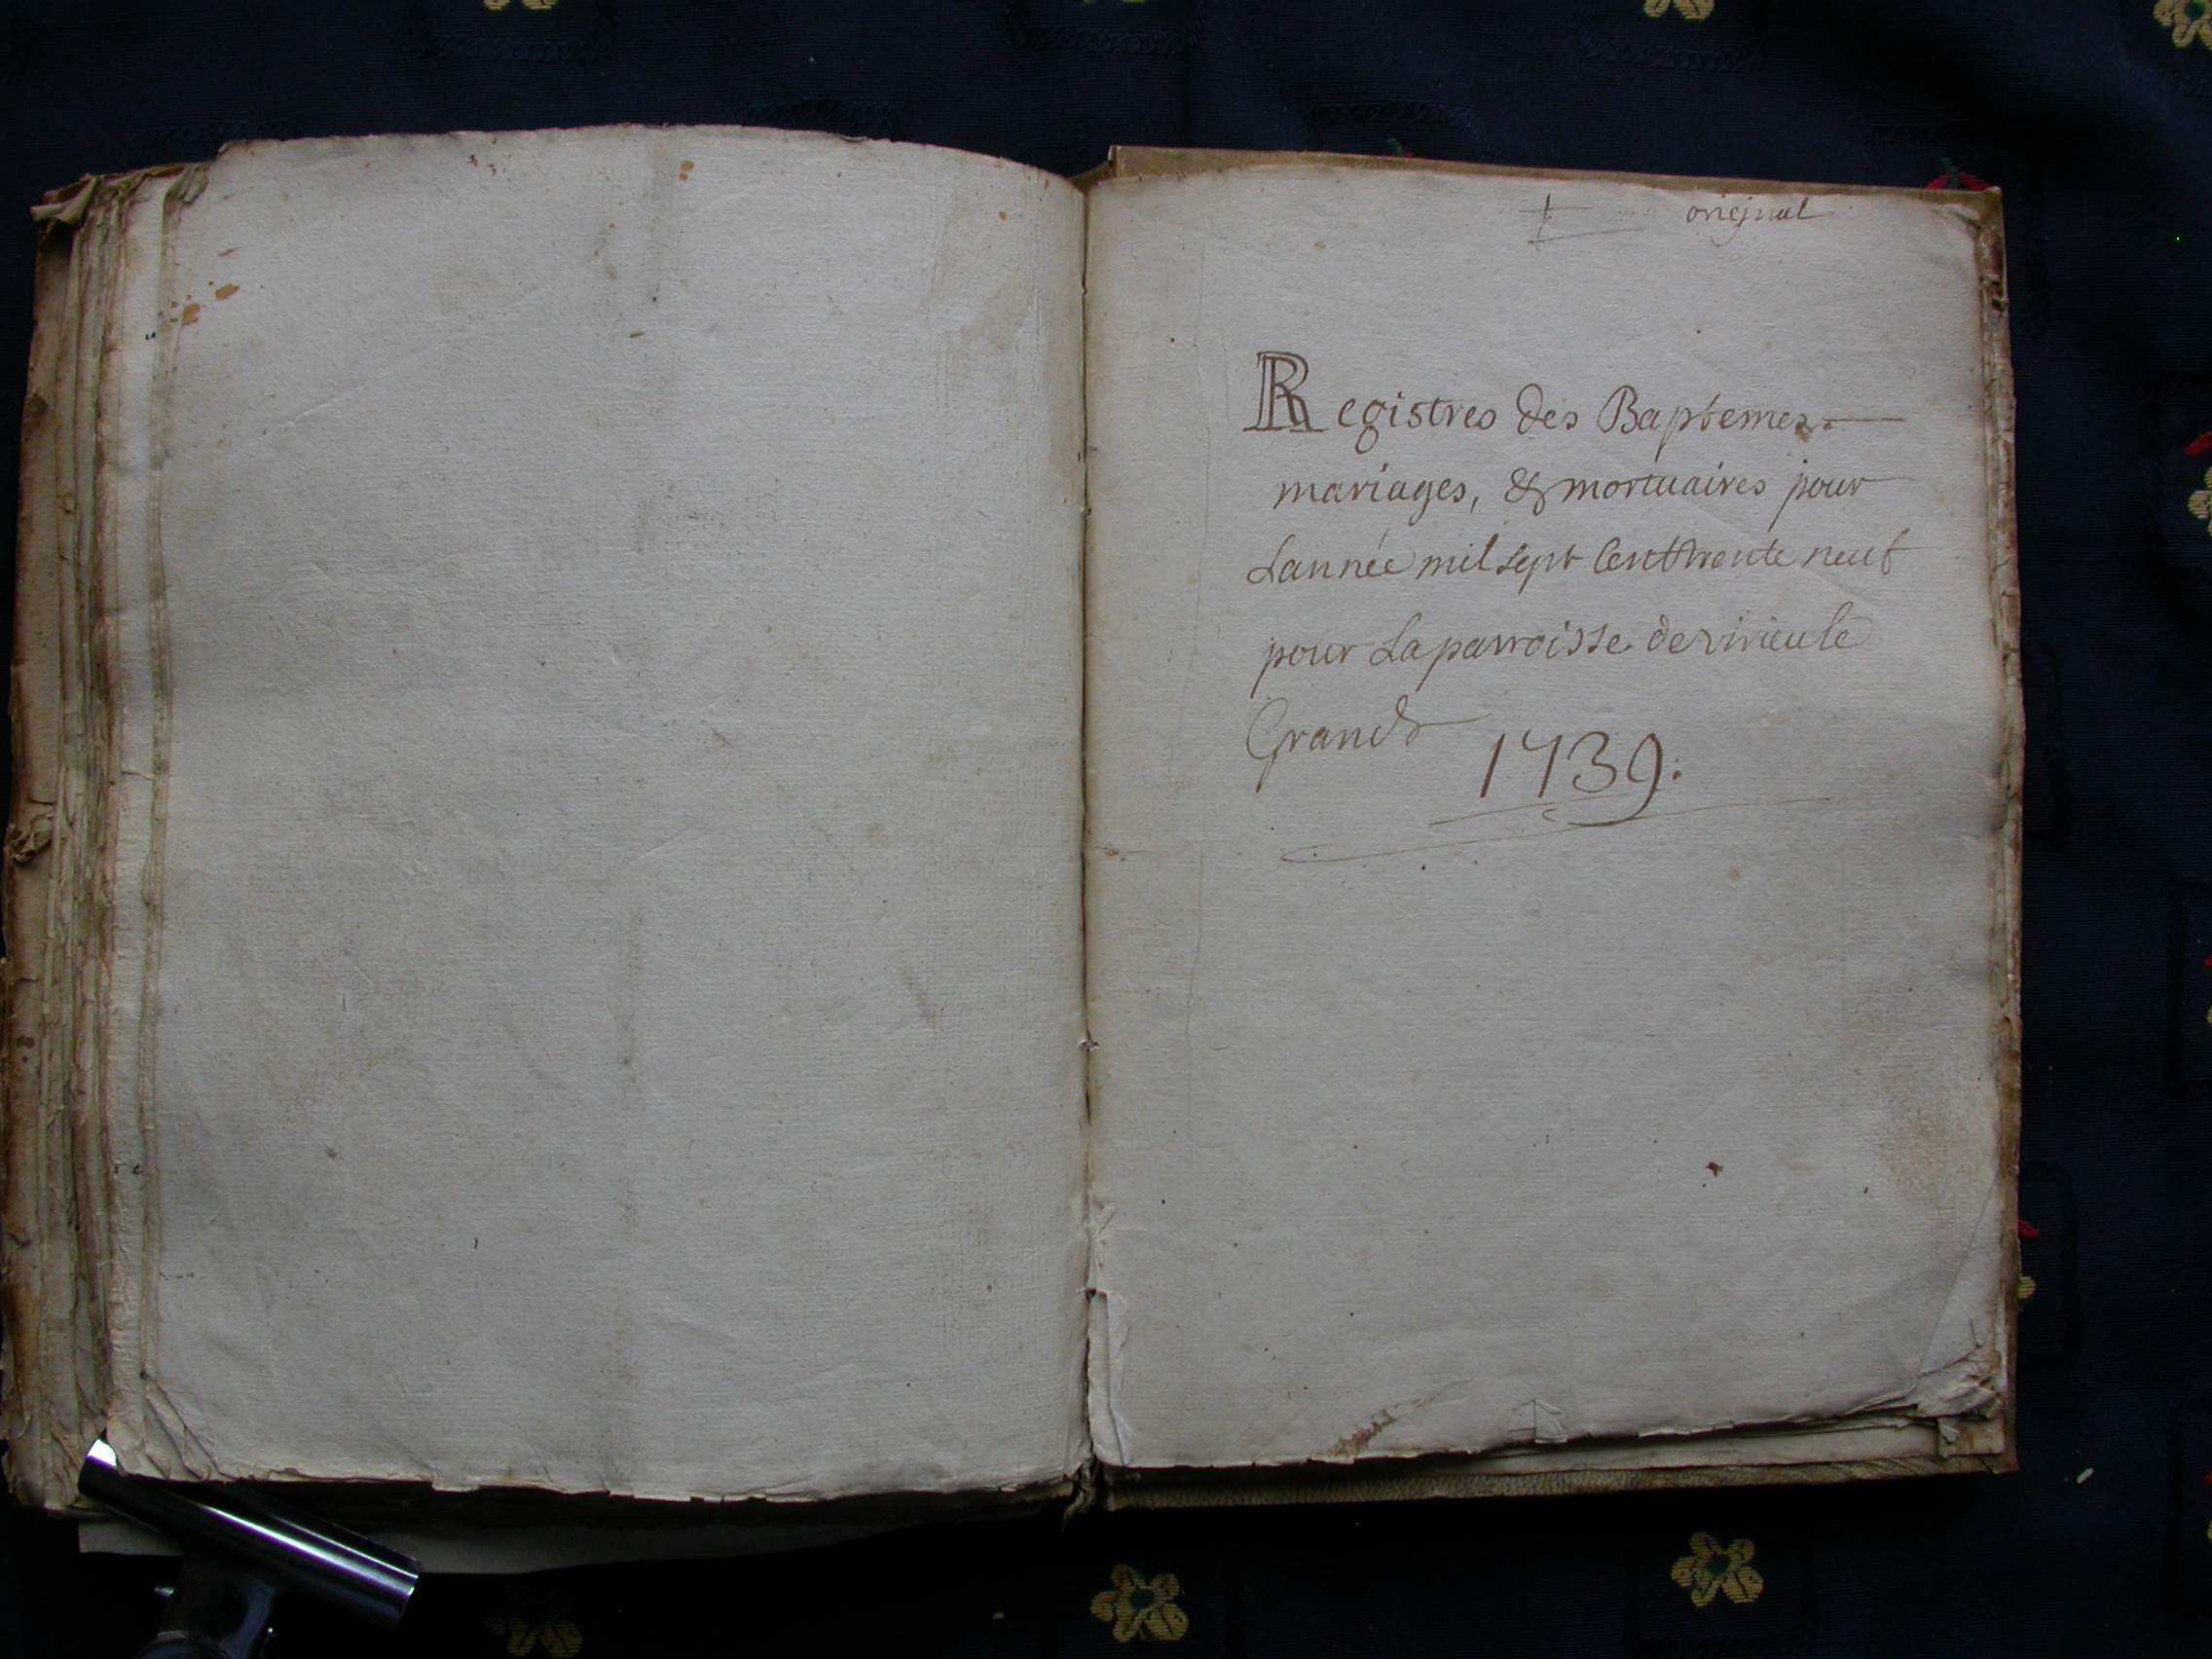 original
Registres des Baptemes
mariages, & mortuaires pour
Lannée mil sept Cent trente neuf
pour La parroisse de virieu le
Grand
1739.